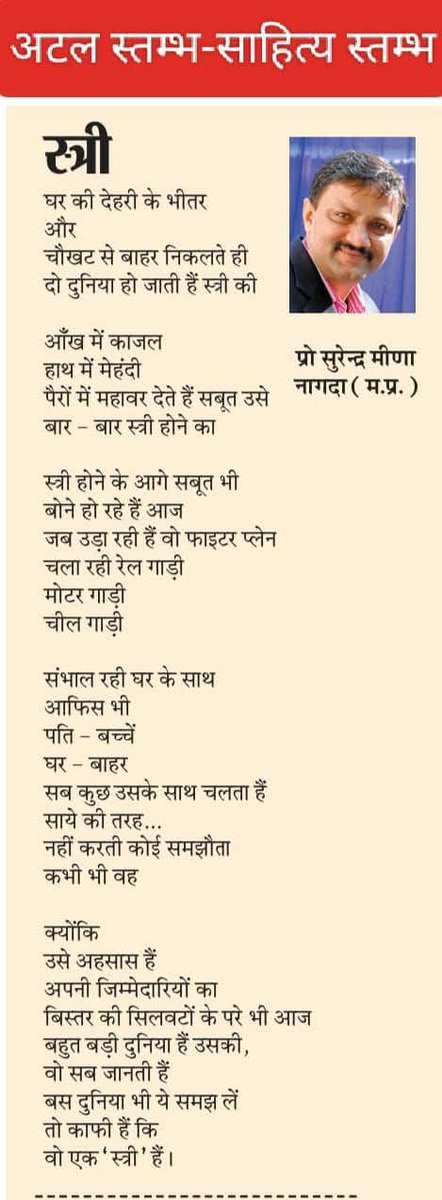 अटल स्तम्भ-साहित्य स्तम्भ
स्त्री
घर की देहरी के भीतर
और
चौखट से बाहर निकलते ही
दो दुनिया हो जाती हैं स्त्री की
आँख में काजल
हाथ में मेहंदी
पैरों में महावर देते हैं सबूत उसे
बार - बार स्त्री होने का
स्त्री होने के आगे सबूत भी
बोने हो रहे हैं आज
जब उड़ा रही हैं वो फाइटर प्लेन
चला रही रेल गाड़ी
मोटर गाड़ी
चील गाड़ी
संभाल रही घर के साथ
आफिस भी
पति - बच्चें
घर - बाहर
सब कुछ उसके साथ चलता हैं
साये की तरह...
नहीं करती कोई समझौता
कभी भी वह
क्योंकि
उसे अहसास हैं
अपनी जिम्मेदारियों का
बिस्तर की सिलवटों के परे भी आज
बहुत बड़ी दुनिया हैं उसकी,
वो सब जानती हैं
बस दुनिया भी ये समझ लें
तो काफी हैं कि
वो एक ‘स्त्री’ हैं।
प्रो सुरेन्द्र मीणा
नागदा ( म.प्र. )